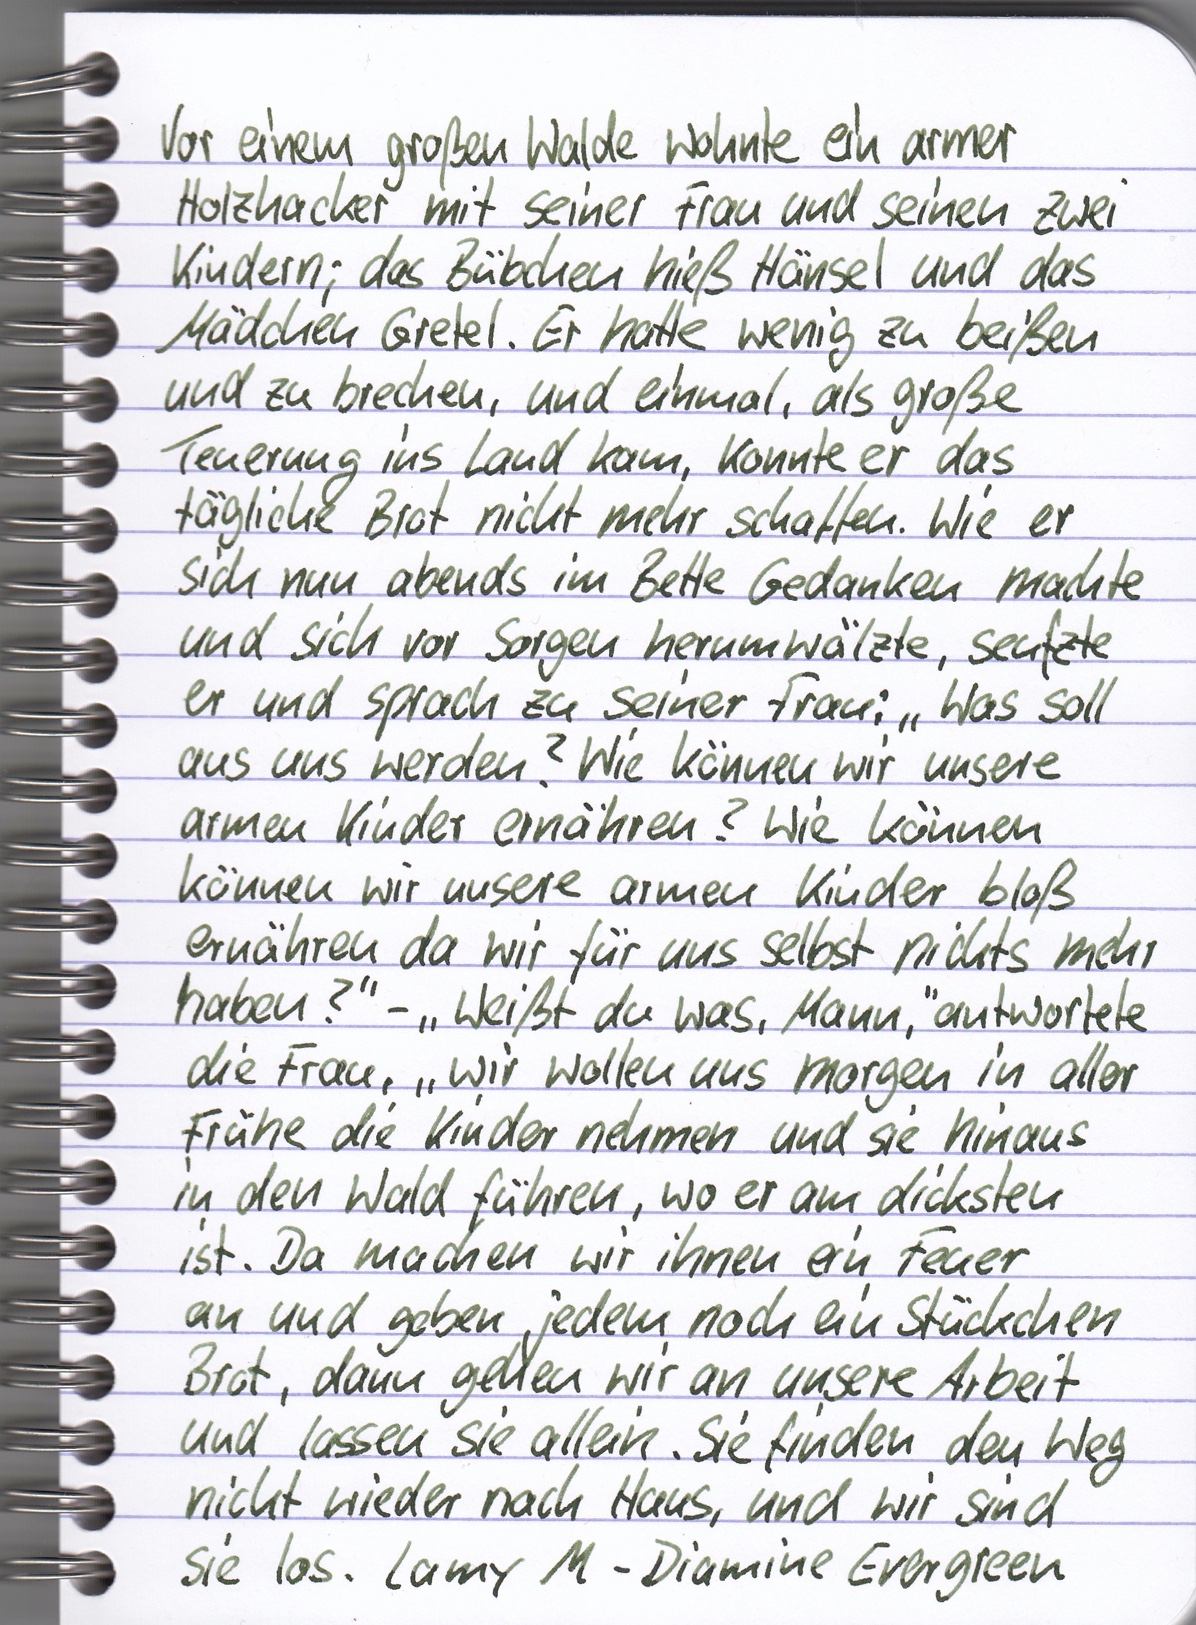 Vor einem großen Walde wohnte ein armer
Holzhacker mit seiner Frau und seinen zwei
Kindern; das Bübchen hieß Hänsel und das
Mädchen Gretel. Er hatte wenig zu beißen
und zu brechen, und einmal, als große
Teuerung ins Land kam, konnte er das
tägliche Brot nicht mehr schaffen. Wie er
sich nun abends im Bette Gedanken machte
und sich vor Sorgen herumwälzte, seufzte
er und sprach zu seiner Frau: „Was soll
aus uns werden? Wie können wir unsere
armen Kinder ernähren? Wie können
können wir unsere armen Kinder bloß
ernähren da wir für uns selbst nichts mehr
haben?" – „Weißt du was, Mann," antwortete
die Frau, „wir wollen uns morgen in aller
Frühe die Kinder nehmen und sie hinaus
in den Wald führen, wo er am dicksten
ist. Da machen wir ihnen ein Feuer
an und geben jedem noch ein Stückchen
Brot, dann gehen wir an unsere Arbeit
und lassen sie allein. Sie finden den Weg
nicht wieder nach Haus, und wir sind
sie los. Lamy M - Diamine Evergreen